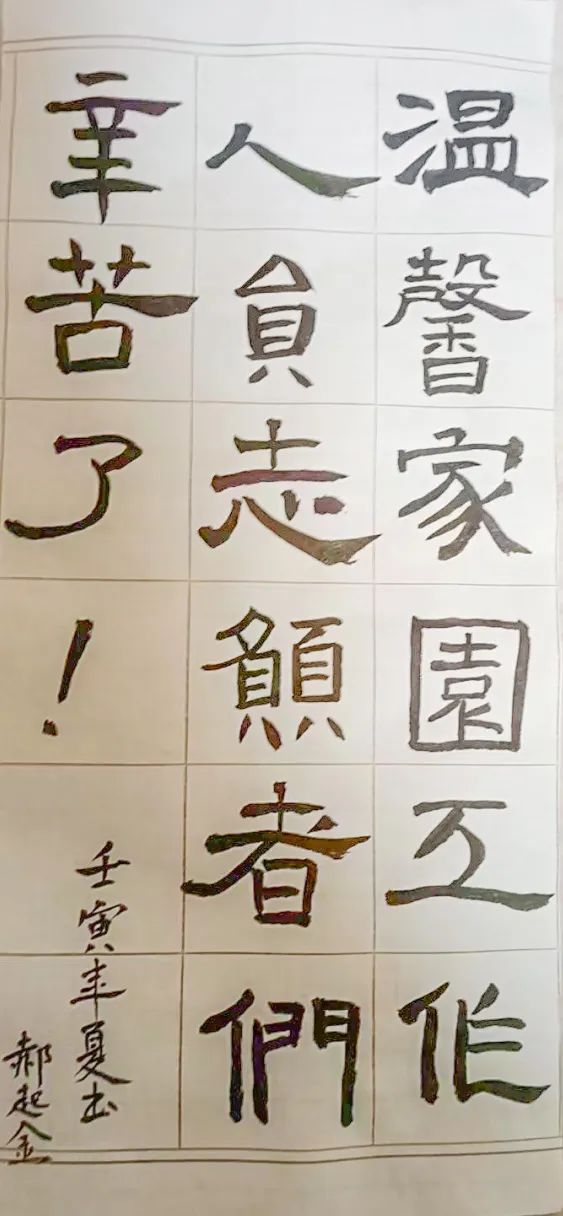 温馨家園工作
人員志願者們
辛苦了！
壬寅年夏书
郝起金